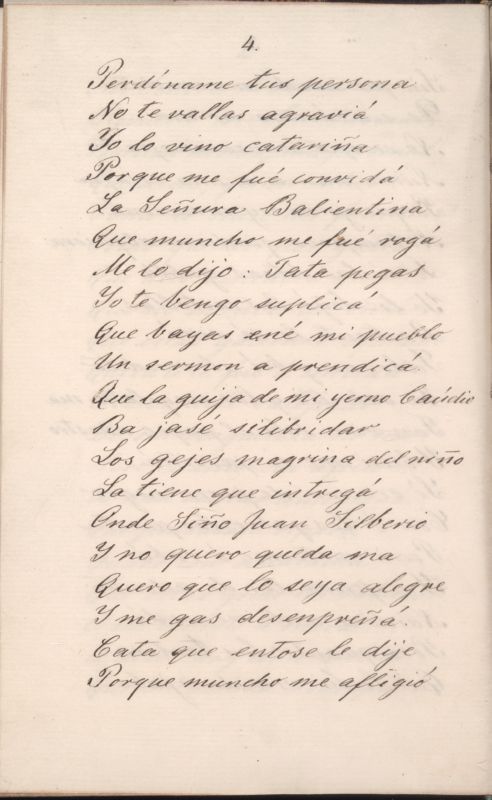 4.
Perdóname tus persona
No te vallas agraviá
Yo lo vino catariña
Porque me fué convidá
La Señura Balientina
Que muncho me fué rogá
Me lo dijo: Tata pegas
Yo te bengo suplicá
Que bayas ené mi pueblo
Un sermon a prendicá
Que la guija de mi yerno Caúdio
Ba jasé silibridar
Los gejes magrina del niño
La tiene que intregá
Onde Siño Juan Silberio
Y no quero queda ma
Quero que lo seya alegre
Y me gas desenpreñá.
Cata que entose le dije
Porque muncho me afligió